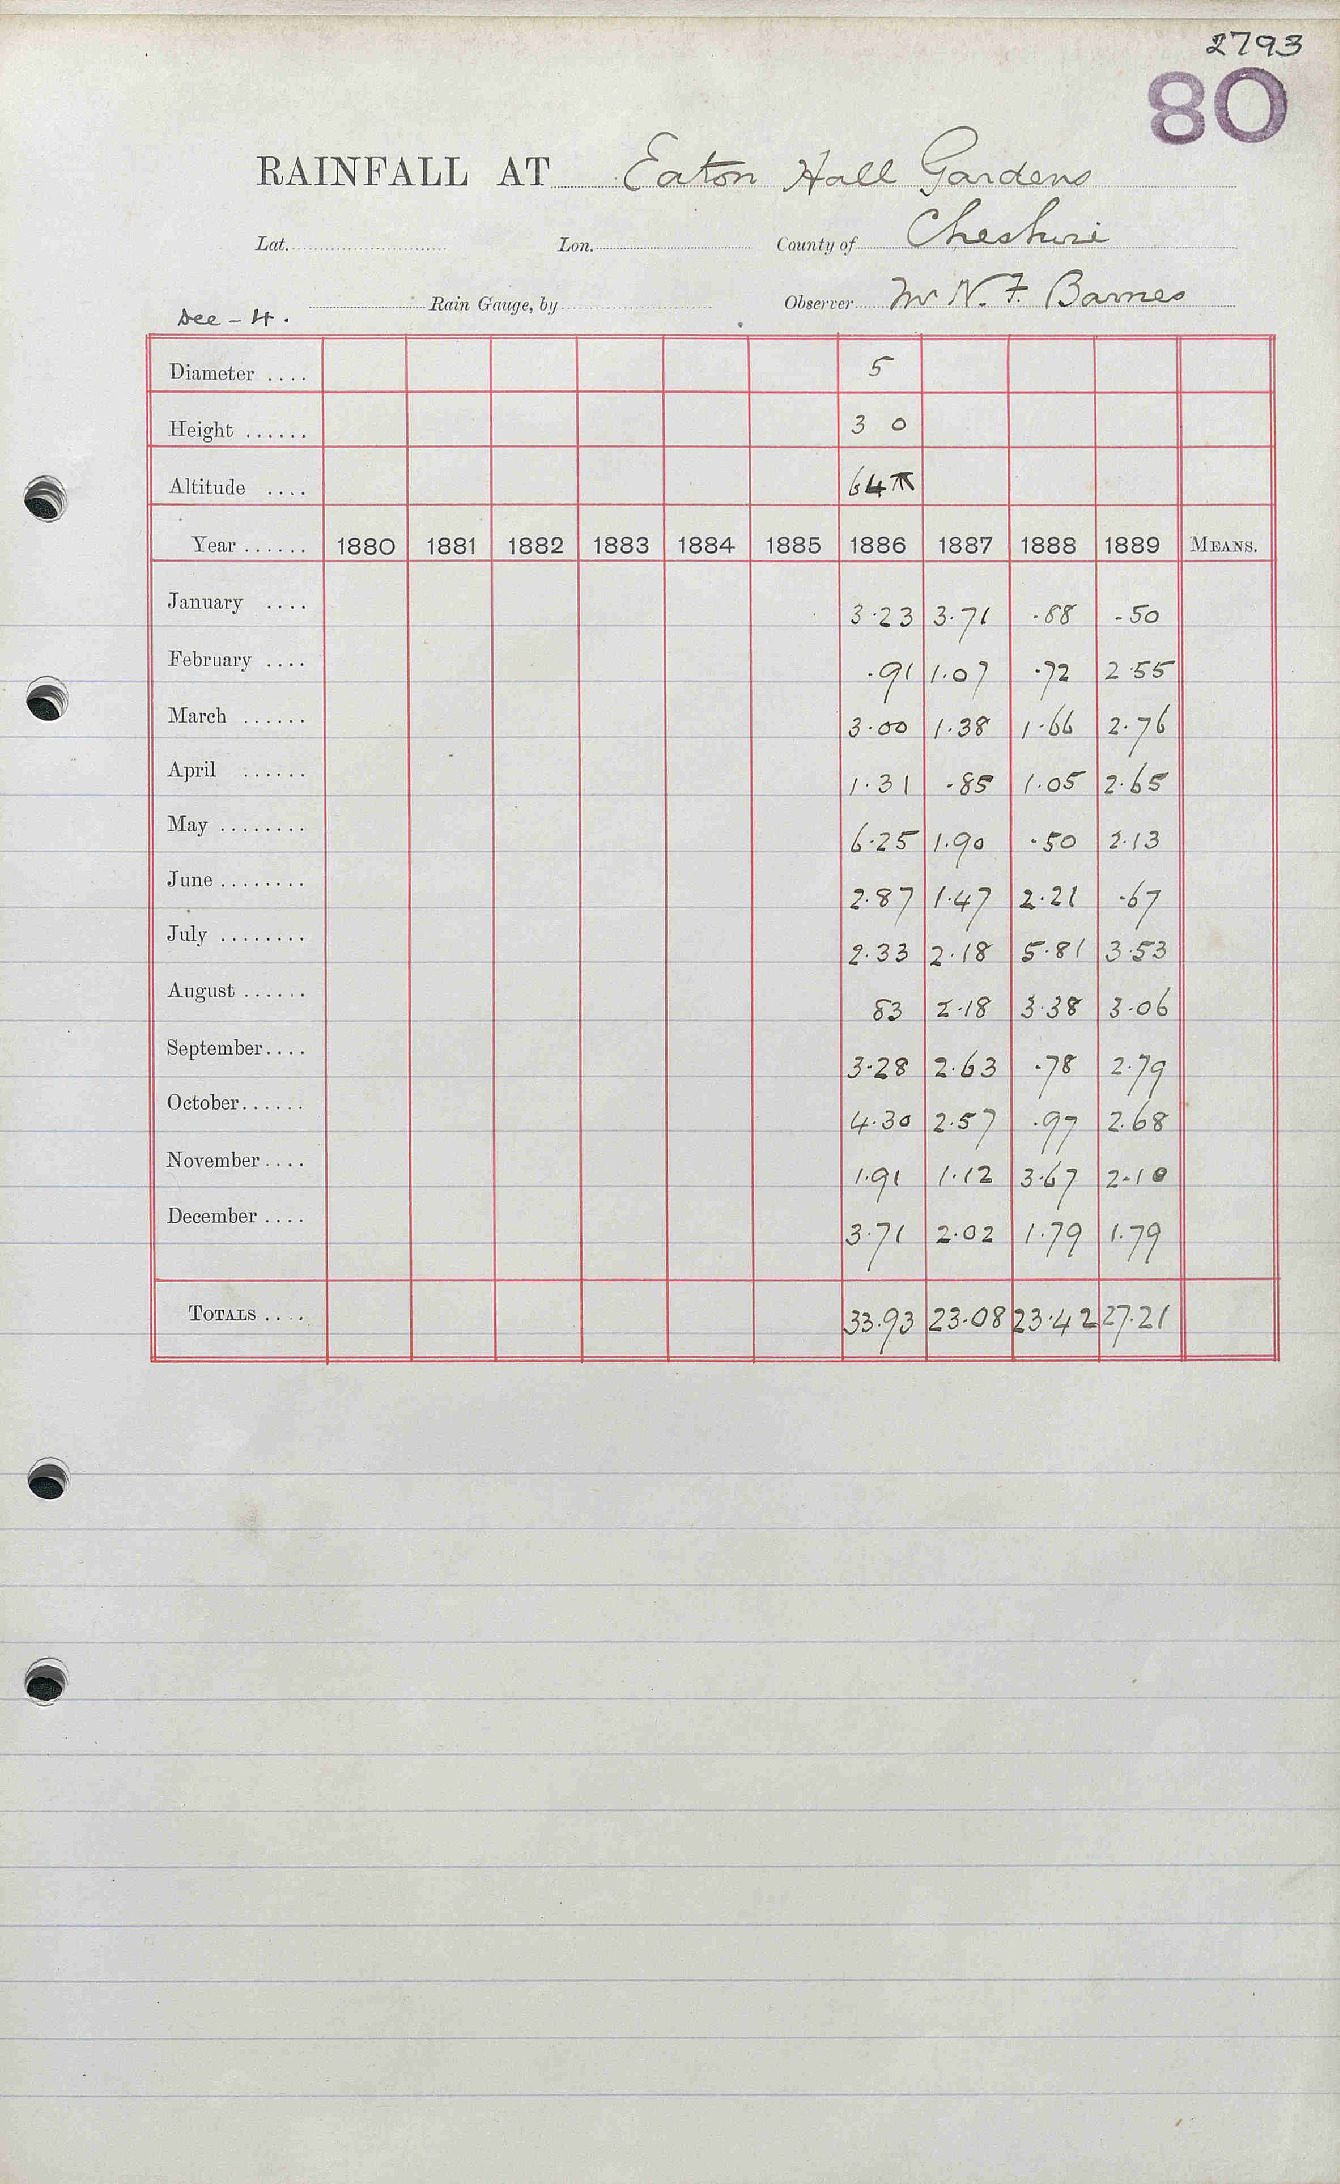 2793
80
RAINFALL AT Eaton Hall Gardens
Lat. Lon. County of Cheshire
Rain Gauge, by Observer Mr N. F. Barnes
Dee - 4.
Diameter .... 5
Height ...... 3 0
Altitude .... 64
Year ...... 1880 1881 1882 1883 1884 1885 1886 1887 1888 1889 MEANS.
January .... 3.23 3.71 .88 .50
February .... .91 1.07 .72 2.55
March ...... 3.00 1.38 1.66 2.76
April ...... 1.31 .85 1.05 2.65
May ........ 6.25 1.90 .50 2.13
June ........ 2.87 1.47 2.21 .67
July ........ 2.33 2.18 5.81 3.53
August ...... 83 2.18 3.38 3.06
September .... 3.28 2.63 .78 2.79
October ...... 4.30 2.57 .97 2.68
November .... 1.91 1.12 3.67 2.10
December .... 3.71 2.02 1.79 1.79
TOTALS .... 33.93 23.08 23.42 27.21